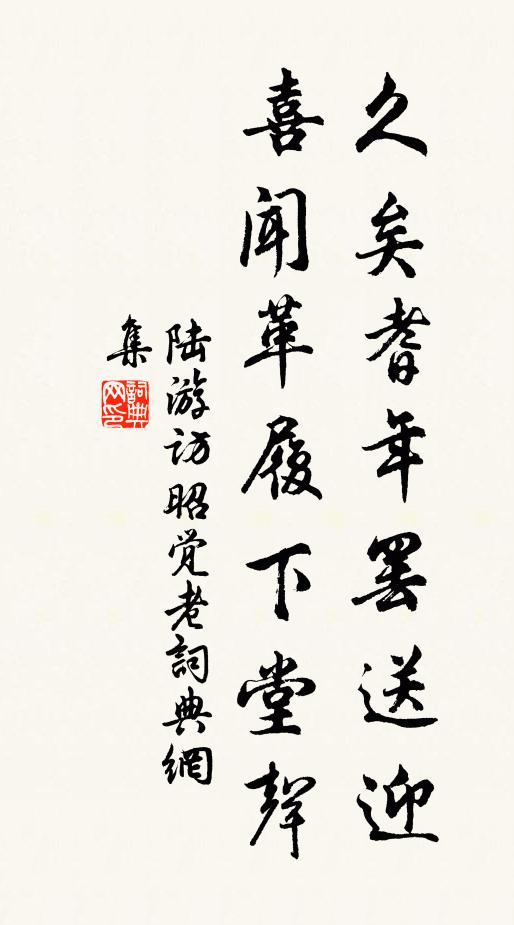 久矣耆年罢送迎
喜闻革履下堂聲
陆游访昭觉老詞典網
集
詞典
网印